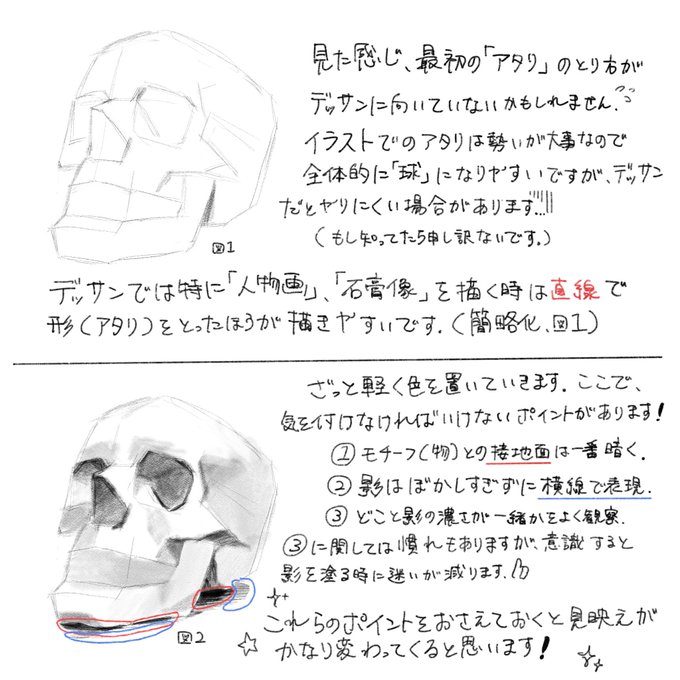 見た感じ、最初の「アタリ」のとり方が
デッサンに向いていないかもしれません。
イラストでのアタリは勢いが大事なので
全体的に「球」になりやすいですが、デッサン
だとやりにくい場合があります...
(もし知ってたら申し訳ないです。)
図1
デッサンでは特に「人物画」、「石膏像」を描く時は直線で
形(アタリ)をとったほうが描きやすいです。(簡略化、図1)
ざっと軽く色を置いていきます。ここで、
気を付けなければいけないポイントがあります!
①モチーフ(物)との接地面は一番暗く。
②影はぼかしすぎずに横線で表現。
③どこと影の濃さが一緒かをよく観察。
③に関しては慣れもありますが、意識すると
影を塗る時に迷いが減ります。
図2
これらのポイントをおさえておくと見映えが
かなり変わってくると思います!